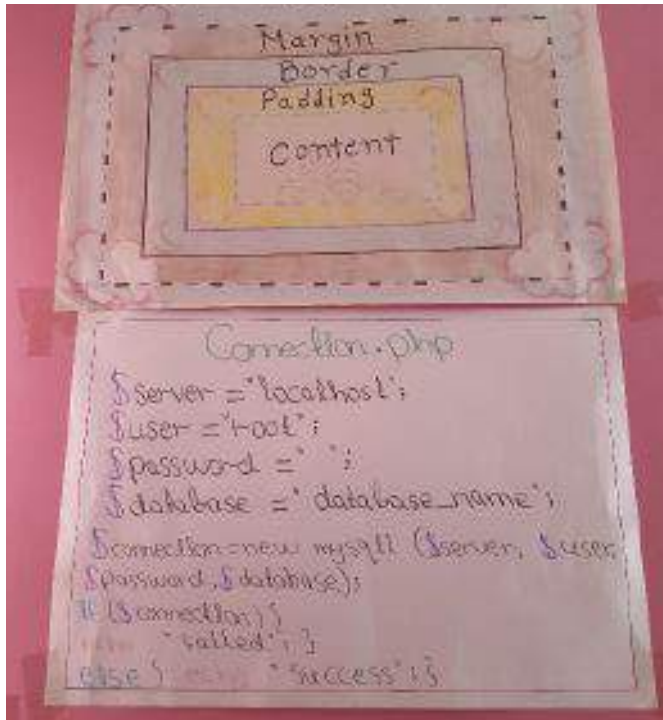 Margin
Border
Padding
Content
Connection.php
$server ="localhost";
$user ="root";
$password =" ";
$database =" database_name";
$connection=new mysqli ($server, $user,
$password,$database);
if($connection){
"failed"; }
else } echo "success";}